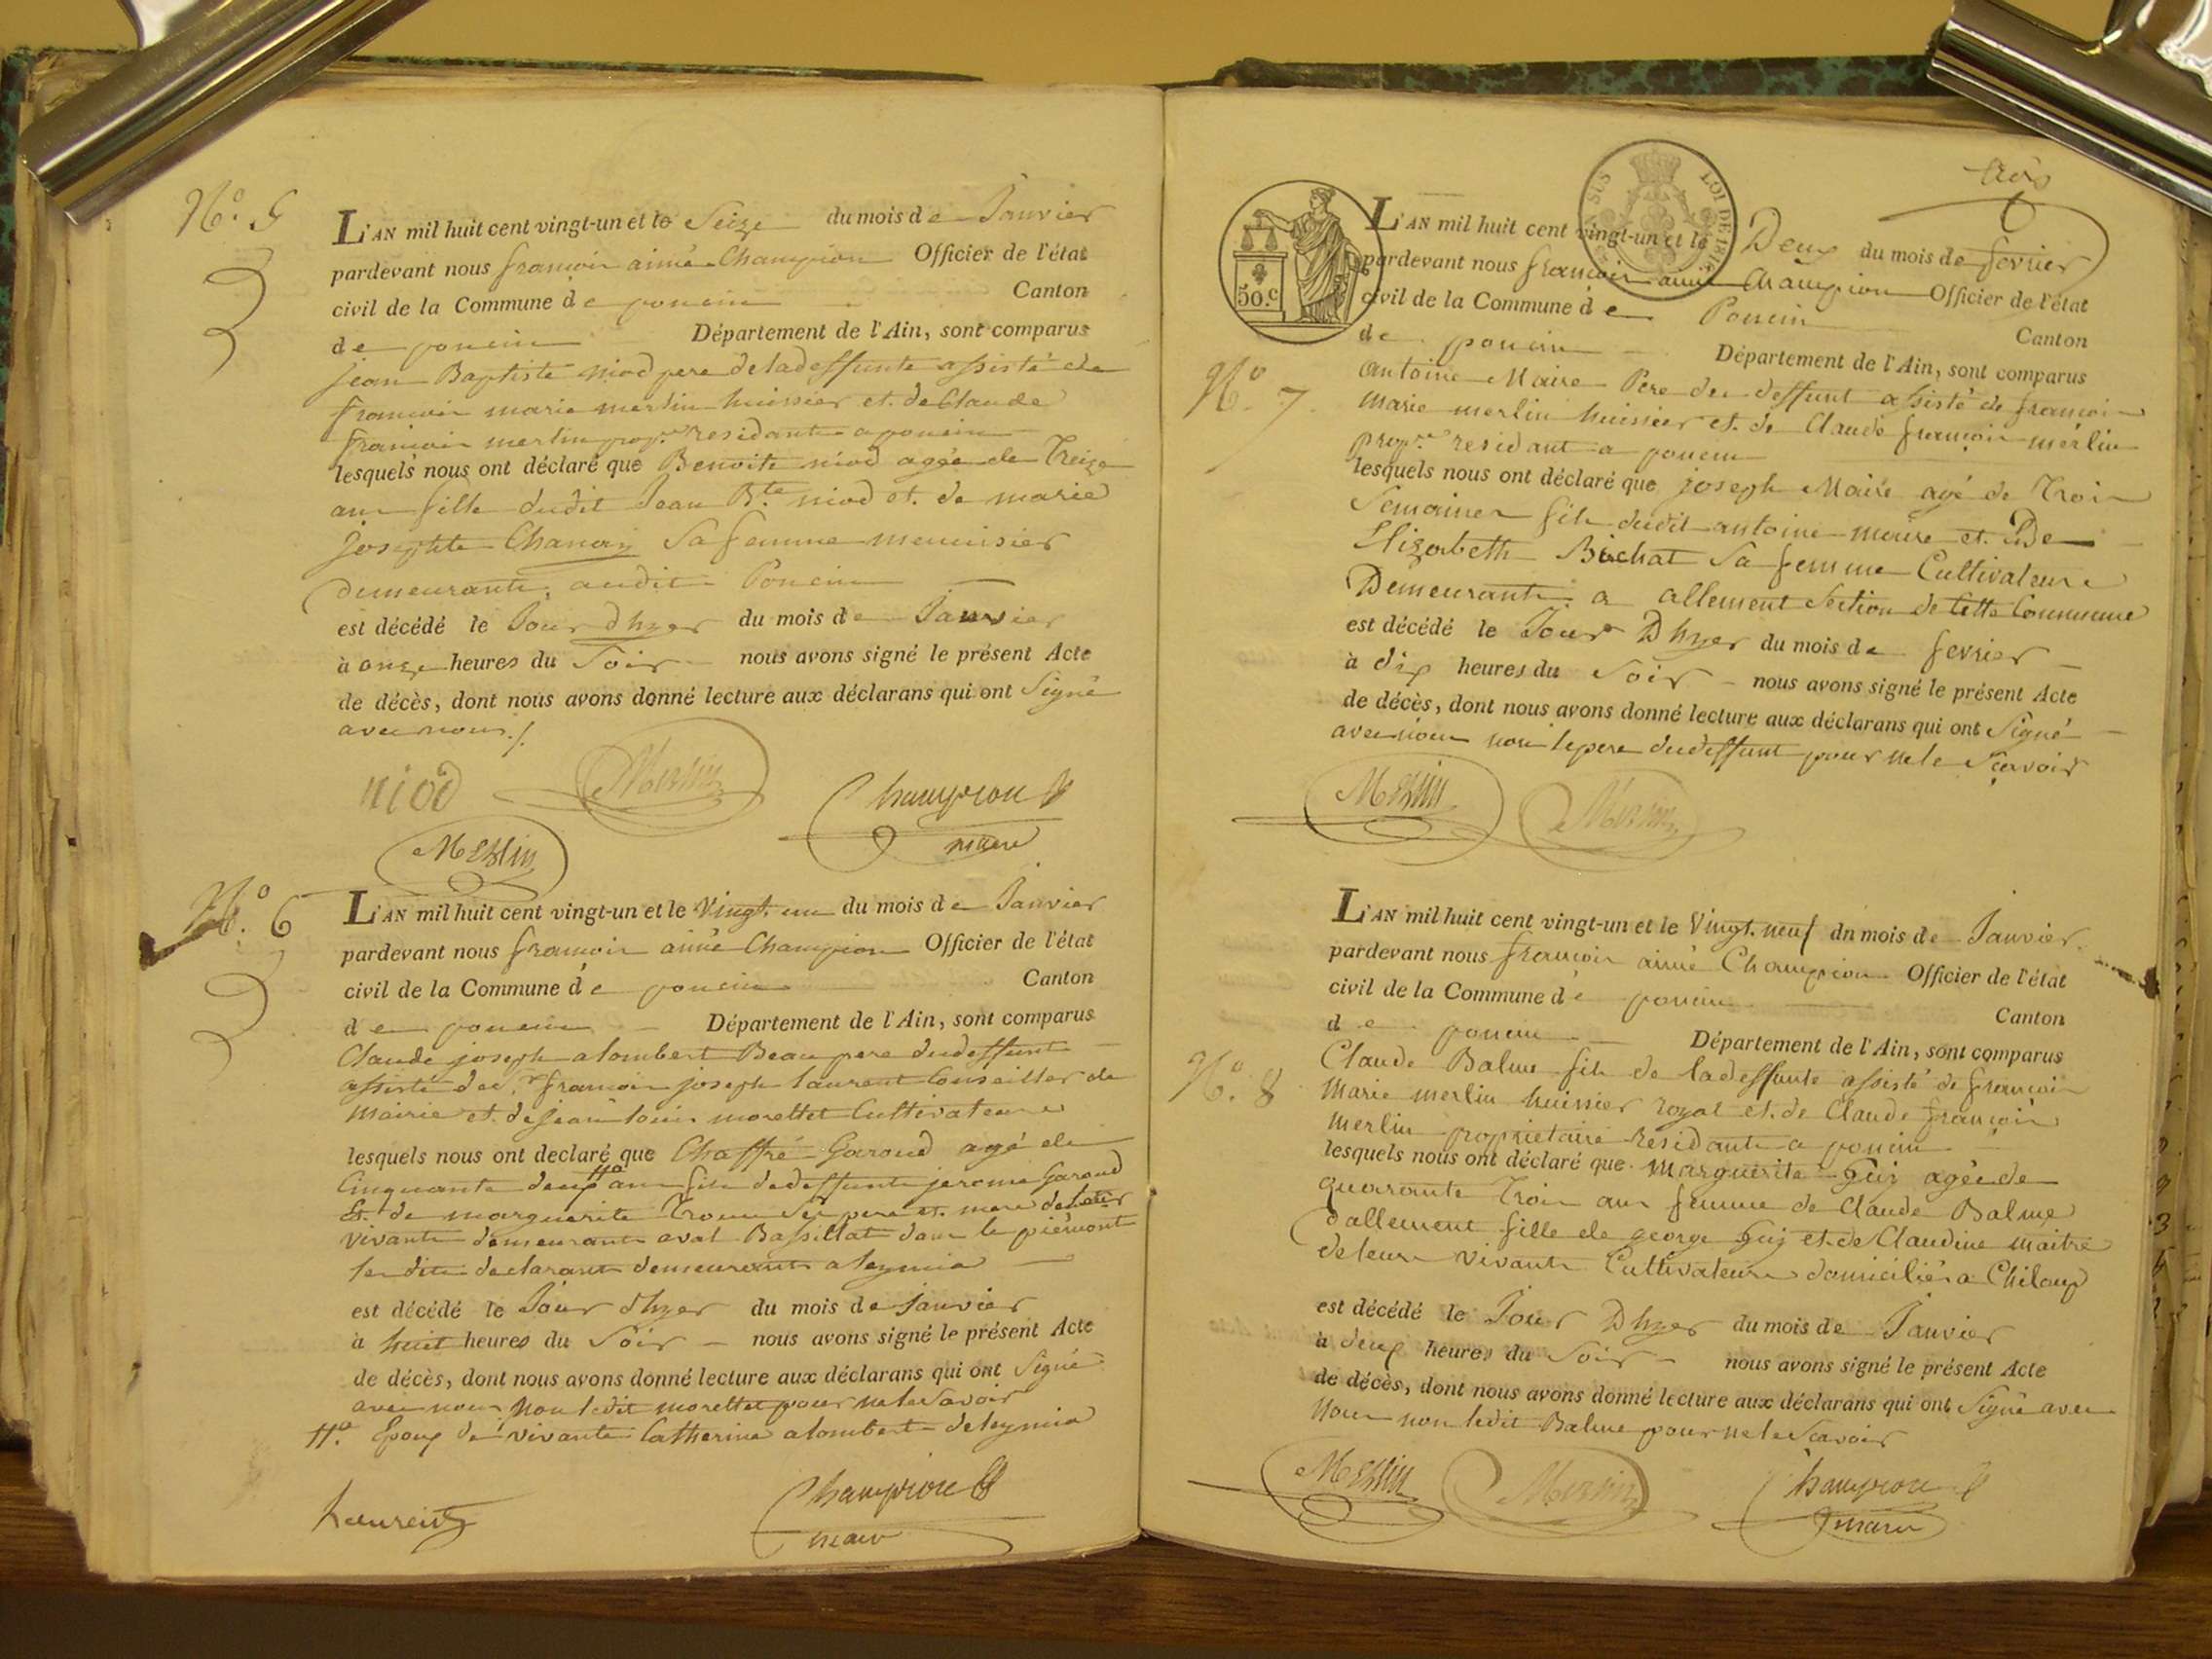 N.o 5
L'AN mil huit cent vingt-un et le Seize du mois de Janvier
pardevant nous françois aimé Champion Officier de l'état
civil de la Commune de poncin Canton
de poncin Département de l'Ain, sont comparus
jean Baptiste niod pere de ladeffunte assisté de
françois marie merlin huissier et de Claude
françois merlin prop.re residants a poncin
lesquels nous ont déclaré que Benoite niod agée de Treize
ans fille dudit Jean B.te niod et de marie
Josephte Chanay Sa femme menuisier
demeurants audit Poncin
est décédé le Jour d'hyer du mois de Janvier
à onze heures du Soir nous avons signé le présent Acte
de décès, dont nous avons donné lecture aux déclarans qui ont Signé
avec nous ./.
niod Merlin Champion
Merlin maire
N.o 6
L'AN mil huit cent vingt-un et le Vingt. un du mois de Janvier
pardevant nous françois aimé Champion Officier de l'état
civil de la Commune dé poncin Canton
de poncin Département de l'Ain, sont comparus
Claude joseph alombert Beau pere dudeffunt
assisté de françois joseph laurent Conseiller de
Mairie et de jean louis morettet Cultivateurs
lesquels nous ont declaré que Chaffré Garoud agé de
Cinquante deux ans fils de deffunts jerome Garoud
Et de marguerite ses pere et mere de leur
vivants demeurants aval Bassillat dans le piémont
les dits declarants demeurants a leymia
est décédé le Jour d'hyer du mois de Janvier
à huit heures du Soir nous avons signé le présent Acte
de décès, dont nous avons donné lecture aux déclarans qui ont Signé
avec nous Non ledit morettet pour ne le Savoir
Epoux de vivante Catherine alombert de leymia
Laurent Champion
maire
trois
SUS LOI DE 1816
50.c
L'AN mil huit cent vingt-un et le Deux du mois de fevrier
pardevant nous françois aimé Champion Officier de l'état
civil de la Commune de Poncin Canton
de poncin Département de l'Ain, sont comparus
N.o 7.
antoine Maire Pere du deffunt assisté de françois
Marie merlin huissier et. de Claude françois merlin
prop.re residant a poncin
lesquels nous ont déclaré que joseph Maire agé de Trois
Semaines fils dudit antoine maire et De
Elizabeth Bichat Sa femme Cultivateurs
Demeurants a allement Section de Cette Commune
est décédé le Jour D'hyer du mois de fevrier
à dix heures du Soir nous avons signé le présent Acte
de décès, dont nous avons donné lecture aux déclarans qui ont Signé
avec nous non le pere dudeffunt pour ne le Sçavoir
Merlin Merlin
L'AN mil huit cent vingt-un et le Vingt. neuf du mois de Janvier
pardevant nous françois aimé Champion Officier de l'état
civil de la Commune dé poncin Canton
de poncin Département de l'Ain, sont comparus
N.o 8
Claude Balme fils de ladeffunte assisté de françois
Marie merlin huissier royal et. de Claude françois
merlin proprietaire residants a poncin
lesquels nous ont déclaré que Marguerite Guy agée de
quarante Trois ans femme de Claude Balme
d'allement fille de george Guy et de Claudine maitre
de leurs vivants Cultivateurs domiciliés a Chiloup
est décédé le Jour D'hyer du mois de Janvier
à deux heures du Soir nous avons signé le présent Acte
de décès, dont nous avons donné lecture aux déclarans qui ont Signé avec
Nous non ledit Balme pour ne le Scavoir
Merlin Merlin Champion
maire